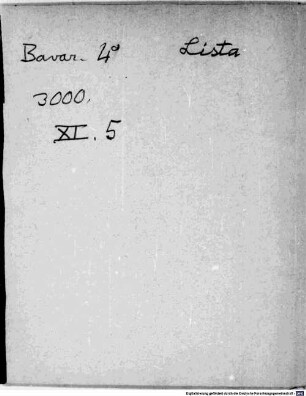 Bavar. 4° Lista
3000,
XI. 5
Digitalisierung gefördert durch die Deutsche Forschungsgemeinschaft